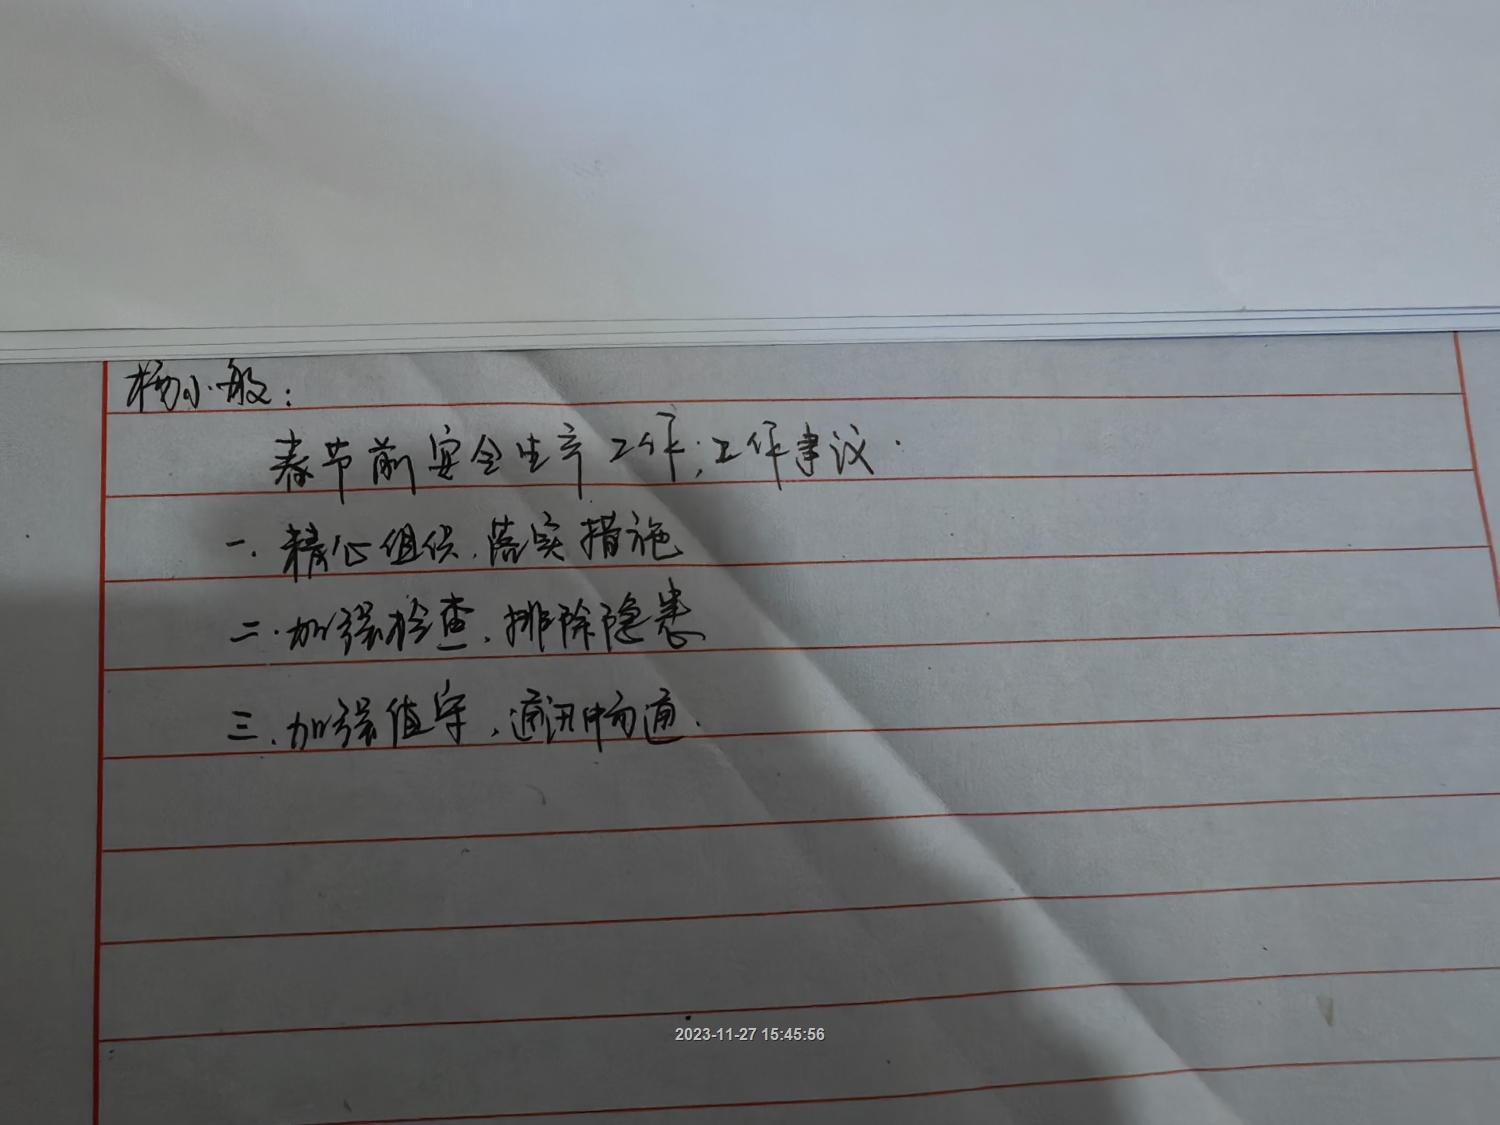 杨小般：
春节前安全生产工作；工作建议.
一.精心组织,落实措施
二.加强检查,排除隐患
三.加强值守,通讯畅通.
2023-11-27 15:45:56